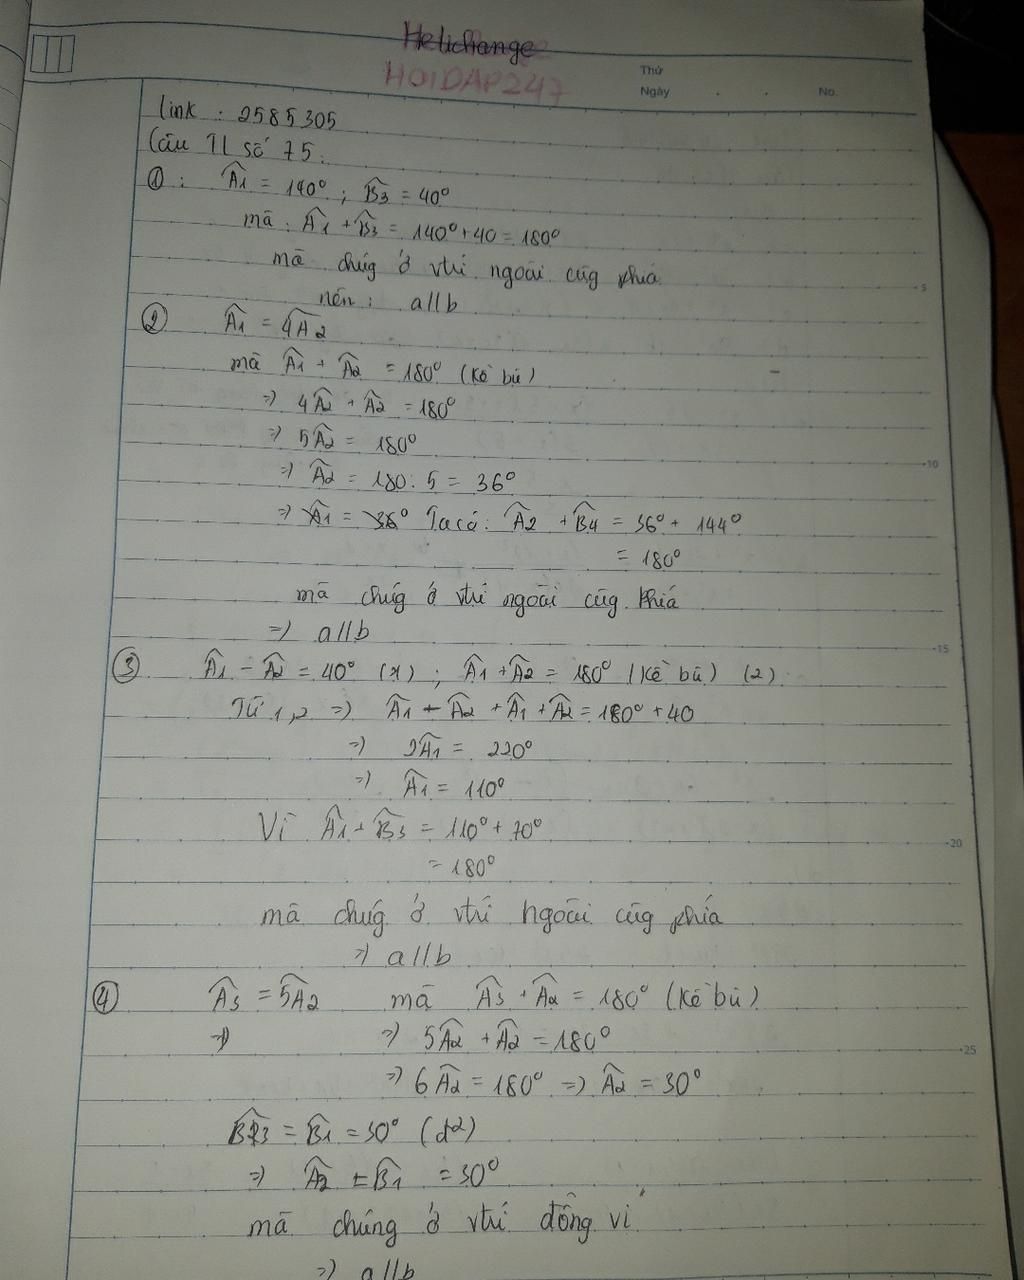 Helichange
HOIDAP247
Thứ
Ngày . . No.
link : 2585305
Câu TL số 75:
①: Â1 = 140° ; B̂3 = 40°
mà: Â1 + B̂3 = 140° + 40 = 180°
mà chúg ở vtrí ngoài cùg phía
nên: a//b
② Â1 = 4Â2
mà Â1 + Â2 = 180° (kề bù)
=> 4Â2 + Â2 = 180°
=> 5Â2 = 180°
=> Â2 = 180 : 5 = 36°
=> Â1 = 36° Ta có: Â2 + B̂4 = 36° + 144°
= 180°
mà chúg ở vtrí ngoài cùg phía
=> a//b
③ Â1 - Â2 = 40° (1) ; Â1 + Â2 = 180° (kề bù) (2)
Từ 1,2 => Â1 - Â2 + Â1 + Â2 = 180° + 40
=> 2Â1 = 220°
=> Â1 = 110°
Vì Â1 + B̂3 = 110° + 70°
= 180°
mà chúg ở vtrí ngoài cùg phía
=> a//b
④ Â3 = 5Â2 mà Â3 + Â2 = 180° (kề bù)
=> => 5Â2 + Â2 = 180°
=> 6Â2 = 180° => Â2 = 30°
B̂3 = B̂1 = 30° (đ²)
=> Â2 = B̂1 = 30°
mà chúng ở vtrí đồng vị
=> a//b
5
10
15
20
25